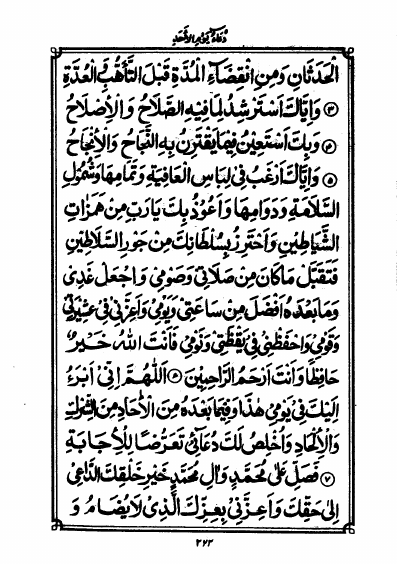 دُعَاءُ يَوْمِ الْأَحَدِ
الْحَدَثَانِ وَمِنِ انْقِضَاءِ الْمُدَّةِ قَبْلَ التَّأَهُّبِ وَالْعُدَّةِ
③ وَاِيَّاكَ اَسْتَرْشِدُ لِمَا فِيهِ الصَّلَاحُ وَالْاِصْلَاحُ
④ وَبِكَ اَسْتَعِينُ فِيمَا يَقْتَرِنُ بِهِ النَّجَاحُ وَالْاِنْجَاحُ
⑤ وَاِيَّاكَ اَرْغَبُ فِي لِبَاسِ الْعَافِيَةِ وَتَمَامِهَا وَشُمُولِ
السَّلَامَةِ وَدَوَامِهَا وَاَعُوذُ بِكَ يَا رَبِّ مِنْ هَمَزَاتِ
الشَّيَاطِينِ وَاَحْتَرِزُ بِسُلْطَانِكَ مِنْ جَوْرِ السَّلَاطِينِ
فَتَقَبَّلْ مَا كَانَ مِنْ صَلَاتِي وَصَوْمِي وَاجْعَلْ غَدِي
وَمَا بَعْدَهُ اَفْضَلَ مِنْ سَاعَتِي وَيَوْمِي وَاَعِزَّنِي فِي عَشِيرَتِي
وَقَوْمِي وَاحْفَظْنِي فِي يَقْظَتِي وَنَوْمِي فَاَنْتَ اللهُ خَيْرٌ
حَافِظًا وَاَنْتَ اَرْحَمُ الرَّاحِمِينَ ⑥ اَللّٰهُمَّ اِنِّي اَبْرَءُ
اِلَيْكَ فِي يَوْمِي هٰذَا وَفِيمَا بَعْدَهُ مِنَ الْاٰحَادِ مِنَ الشِّرْكِ
وَالْاِلْحَادِ وَاُخْلِصُ لَكَ دُعَائِي تَعَرُّضًا لِلْاِجَابَةِ
⑦ فَصَلِّ عَلٰى مُحَمَّدٍ وَاٰلِ مُحَمَّدٍ خَيْرِ خَلْقِكَ الدَّاعِي
اِلٰى حَقِّكَ وَاَعِزَّنِي بِعِزِّكَ الَّذِي لَا يُضَامُ وَ
۲۷۳